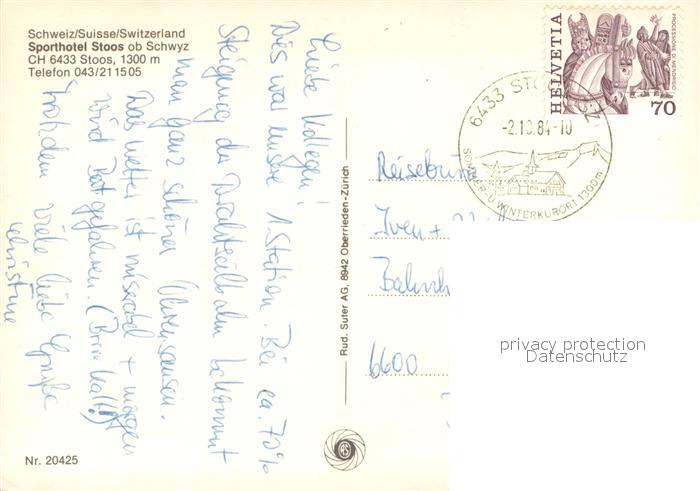 Schweiz/Suisse/Switzerland
Sporthotel Stoos ob Schwyz
CH 6433 Stoos, 1300 m
Telefon 043/211505
Liebe Kollegen!
Dies war unsere 1 Station. Bei ca. 70%
Steigung der Drahtseilbahn bekommt
man ganz schönes Ohrensausen.
Das Wetter ist miserabel + morgen
wird Rad gefahren. (Brrr kalt!)
Trotzdem viele liebe Grüße
Christine
Nr. 20425
Rud. Suter AG, 8942 Oberrieden-Zürich
HELVETIA
PROCESSIONE DI MENDRISIO
70
6433 STOOS
-2.10.84-10
SOMMER- U. WINTERKURORT 1300m
Reisebüro
Iven +
Bahnh
6600
privacy protection
Datenschutz